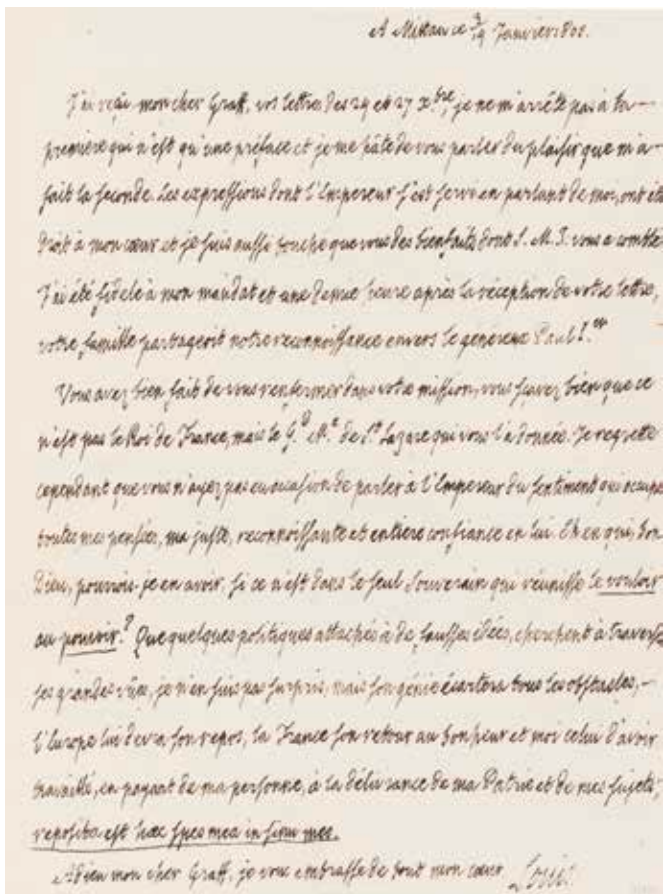 A Mittau ce 7/19 Janvier 1800.
J'ai reçu mon cher Graff, vos lettres des 24 et 27 Xbre, je ne m'arrête pas à la
première qui n'est qu'une préface et je me hâte de vous parler du plaisir que m'a
fait la seconde. Les expressions dont l'Empereur s'est servi en parlant de moi, ont été
droit à mon cœur et je suis aussi touché que vous des bienfaits dont S. M. I. vous a comblé.
J'ai été fidele à mon mandat et une demie heure après la réception de votre lettre,
votre famille partageoit notre reconnoissance envers le généreux Paul I.er
Vous avez bien fait de vous renfermer dans votre mission, vous sçavez bien que ce
n'est pas le Roi de France, mais le G.d M.e de S.t Lazare qui vous l'a donnée. Je regrette
cependant que vous n'ayez pas eu occasion de parler à l'Empereur du sentiment qui occupe
toutes mes pensées, ma juste, reconnoissante et entiere confiance en lui. Eh en qui, bon
Dieu, pourrois-je en avoir, si ce n'est dans le seul Souverain qui réunisse le vouloir
au pouvoir? Que quelques politiques attachés à de fausses idées, cherchent à traverser
ses grandes vûes, je n'en suis pas surpris, mais son génie écartera tous les obstacles,
l'Europe lui devra son repos, la France son retour au bonheur et moi celui d'avoir
travaillé, en payant de ma personne, à la délivrance de ma Patrie et de mes sujets;
reposita est hæc spes mea in sinu meo.
Adieu mon cher Graff, je vous embrasse de tout mon cœur. Louis